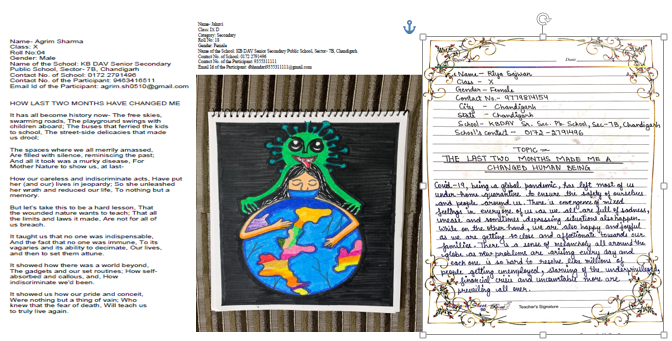 Name:- Agrim Sharma
Class: X
Roll No:04
Gender: Male
Name of the School: KB DAV Senior Secondary
Public School, Sector- 7B, Chandigarh
Contact No. of School: 0172 2791496
Contact No. of the Participant: 9463416511
Email Id of the Participant: agrim.sh0510@gmail.com
HOW LAST TWO MONTHS HAVE CHANGED ME
It has all become history now- The free skies,
swarming roads, The playground swings with
children aboard; The buses that ferried the kids
to school, The street-side delicacies that made
us drool;
The spaces where we all merrily amassed,
Are filled with silence, reminiscing the past;
And all it took was a murky disease, For
Mother Nature to show us, at last-
How our careless and indiscriminate acts, Have put
her (and our) lives in jeopardy; So she unleashed
her wrath and reduced our life, To nothing but a
memory.
But let's take this to be a hard lesson, That
the wounded nature wants to teach; That all
the limits and laws it made, Are not for all of
us breach.
It taught us that no one was indispensable,
And the fact that no one was immune, To its
vagaries and its ability to decimate, Our lives,
and then to set them attune.
It showed how there was a world beyond,
The gadgets and our set routines; How self-
absorbed and callous, and, How
indiscriminate we'd been.
It showed us how our pride and conceit,
Were nothing but a thing of vain; Who
knew that the fear of death, Will teach us
to truly live again.
Name:
Class: IX D
Category: Secondary
Roll No: 18
Gender: Female
Name of the School: KB DAV Senior Secondary Public School, Sector- 7B, Chandigarh
Contact No. of the Participant:
Email Id of the Participant:
Date
Name - Riya Sajwan
Class - X
Gender - Female
Contact No. - 9779814154
City - Chandigarh
State - Chandigarh
School - KBDAV Sr. Sec. Pb. School, Sec-7B, Chandigarh
School's contact - 0172-2791496
TOPIC -
THE LAST TWO MONTHS MADE ME A
CHANGED HUMAN BEING
Covid-19, being a global pandemic, has left most of us
under home quarantine to ensure the safety of ourselves
and people around us. There is emergence of mixed
feelings in everyone of us as we all are full of sadness,
unease and sometimes depressing situations also happen
while on the other hand, we are also happy and joyful
as we are getting so close and affectionate towards our
families. There is a sense of melancholy all around the
globe as new problems are arising every day and
each one is so hard to resolve like millions of
people getting unemployed, starving of the underprivileged,
financial crisis and uncountable more are
prevailing all over.
Teacher's Signature